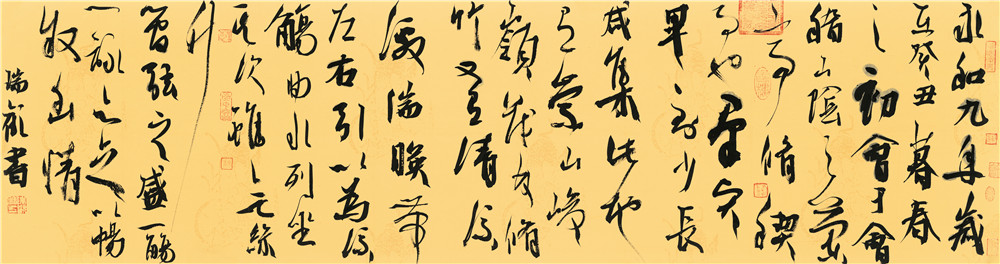 永和九年歲
在癸丑暮春
之初會于會
稽山陰之蘭
亭脩禊
事也羣賢
畢至少長
咸集此地
有崇山峻
嶺茂林脩
竹又有清流
激湍暎帶
左右引以為流
觴曲水列坐
其次雖無絲
竹
管弦之盛一觴
一詠亦足以暢
敘幽情
瑞書